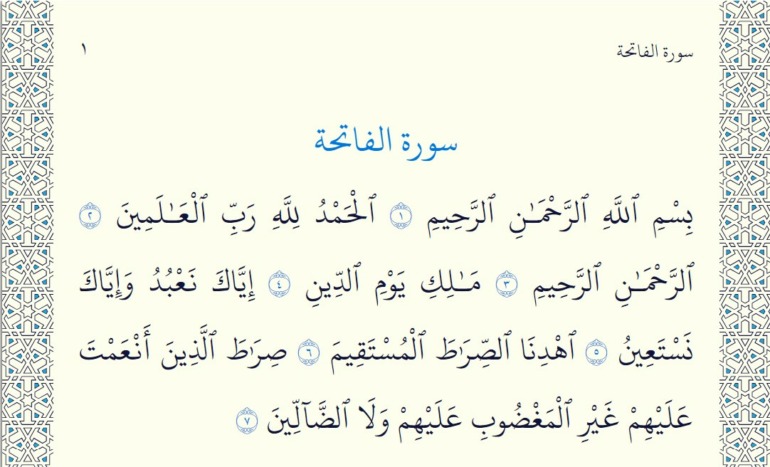 سورة الفاتحة ١
سورة الفاتحة
بِسْمِ ٱللَّهِ ٱلرَّحْمَـٰنِ ٱلرَّحِيمِ ١ ٱلْحَمْدُ لِلَّهِ رَبِّ ٱلْعَـٰلَمِينَ ٢
ٱلرَّحْمَـٰنِ ٱلرَّحِيمِ ٣ مَـٰلِكِ يَوْمِ ٱلدِّينِ ٤ إِيَّاكَ نَعْبُدُ وَإِيَّاكَ
نَسْتَعِينُ ٥ ٱهْدِنَا ٱلصِّرَٰطَ ٱلْمُسْتَقِيمَ ٦ صِرَٰطَ ٱلَّذِينَ أَنْعَمْتَ
عَلَيْهِمْ غَيْرِ ٱلْمَغْضُوبِ عَلَيْهِمْ وَلَا ٱلضَّآلِّينَ ٧